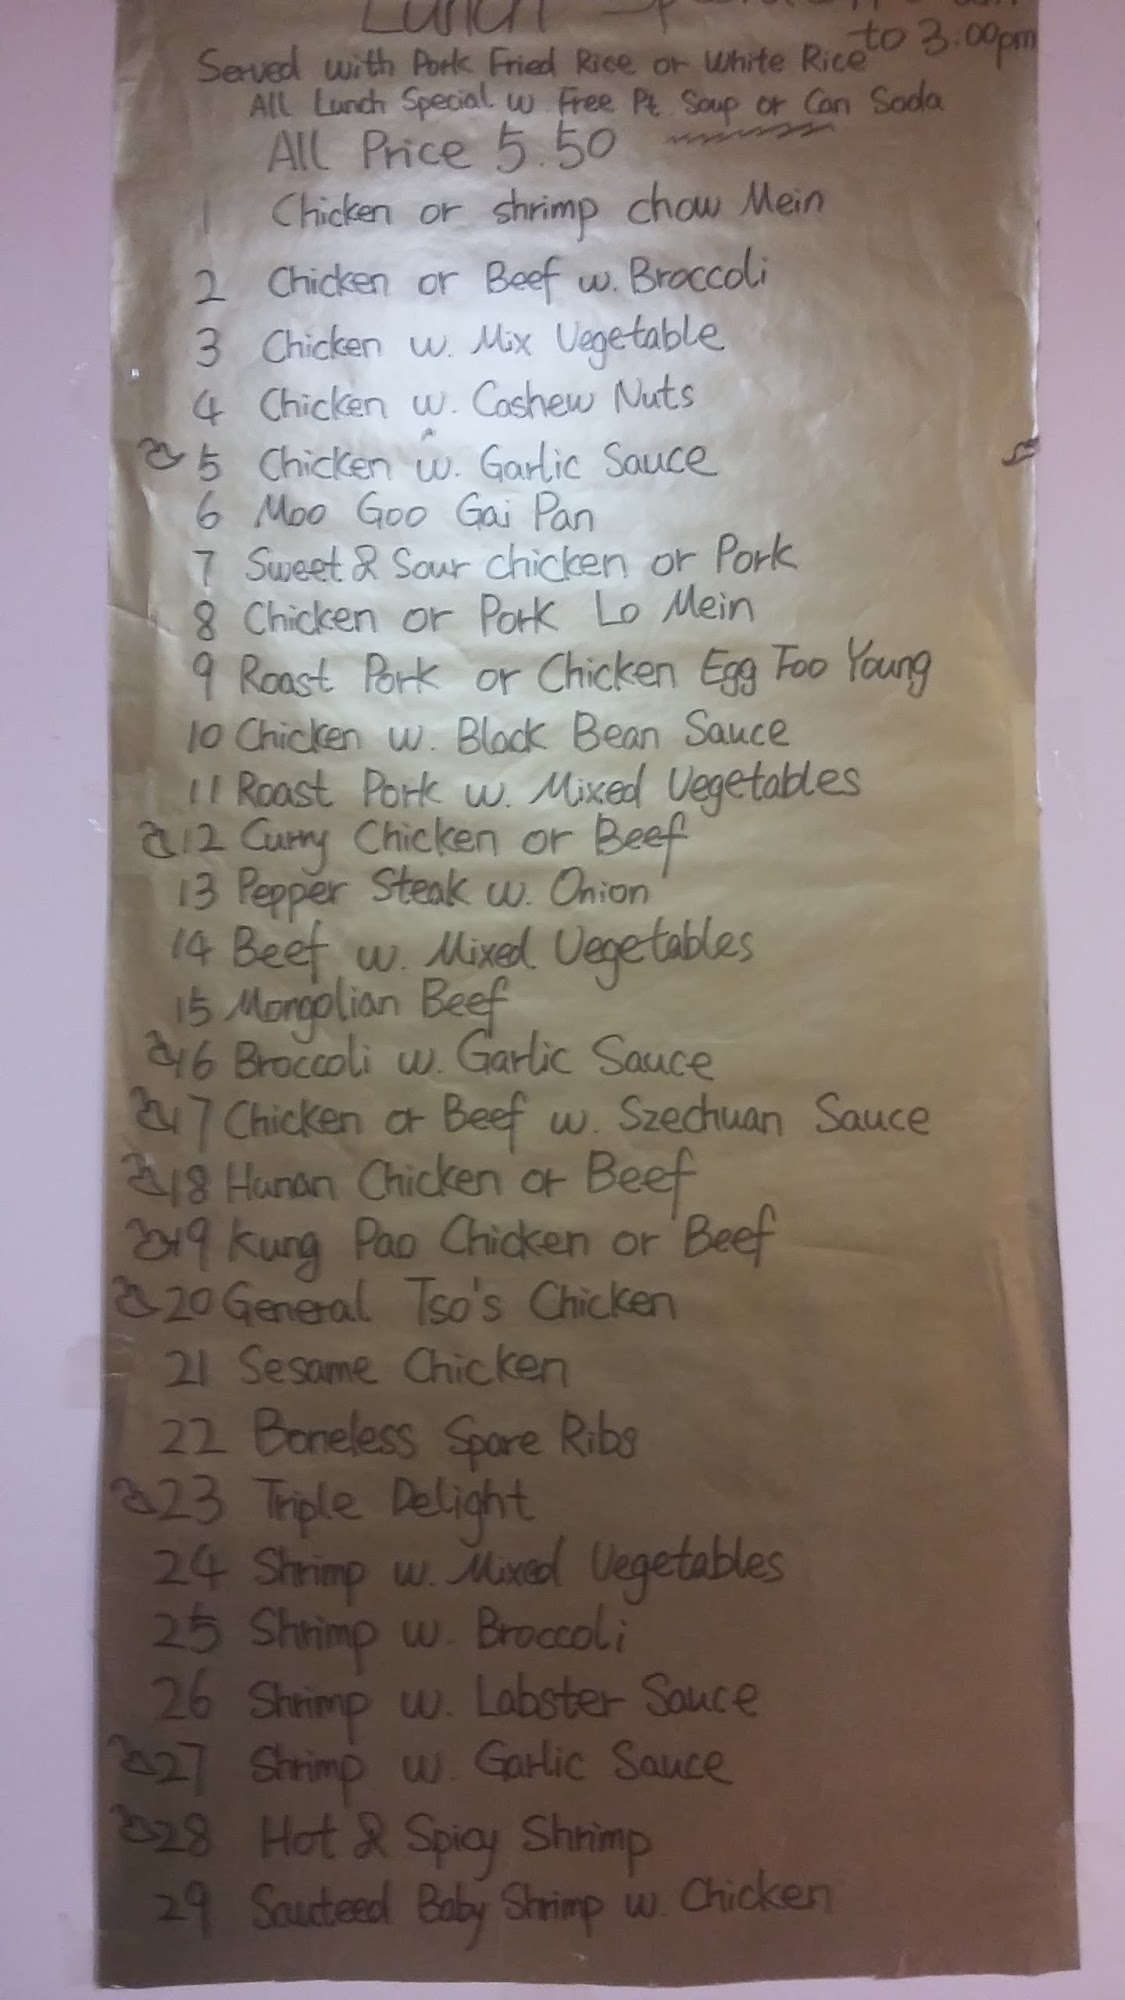 Lunch
to 3:00pm
Served with Pork Fried Rice or White Rice
All Lunch Special w. Free Pt. Soup or Can Soda
All Price 5.50
1 Chicken or shrimp chow Mein
2 Chicken or Beef w. Broccoli
3 Chicken w. Mix Vegetable
4 Chicken w. Cashew Nuts
5 Chicken w. Garlic Sauce
6 Moo Goo Gai Pan
7 Sweet & Sour chicken or Pork
8 Chicken or Pork Lo Mein
9 Roast Pork or Chicken Egg Foo Young
10 Chicken w. Black Bean Sauce
11 Roast Pork w. Mixed Vegetables
12 Curry Chicken or Beef
13 Pepper Steak w. Onion
14 Beef w. Mixed Vegetables
15 Mongolian Beef
16 Broccoli w. Garlic Sauce
17 Chicken or Beef w. Szechuan Sauce
18 Hunan Chicken or Beef
19 Kung Pao Chicken or Beef
20 General Tso's Chicken
21 Sesame Chicken
22 Boneless Spare Ribs
23 Triple Delight
24 Shrimp w. Mixed Vegetables
25 Shrimp w. Broccoli
26 Shrimp w. Labster Sauce
27 Shrimp w. Garlic Sauce
28 Hot & Spicy Shrimp
29 Sauteed Baby Shrimp w. Chicken